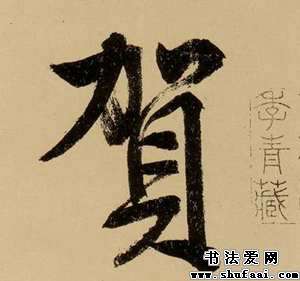 賀
李青藏
书法爱网
www.shufaai.com